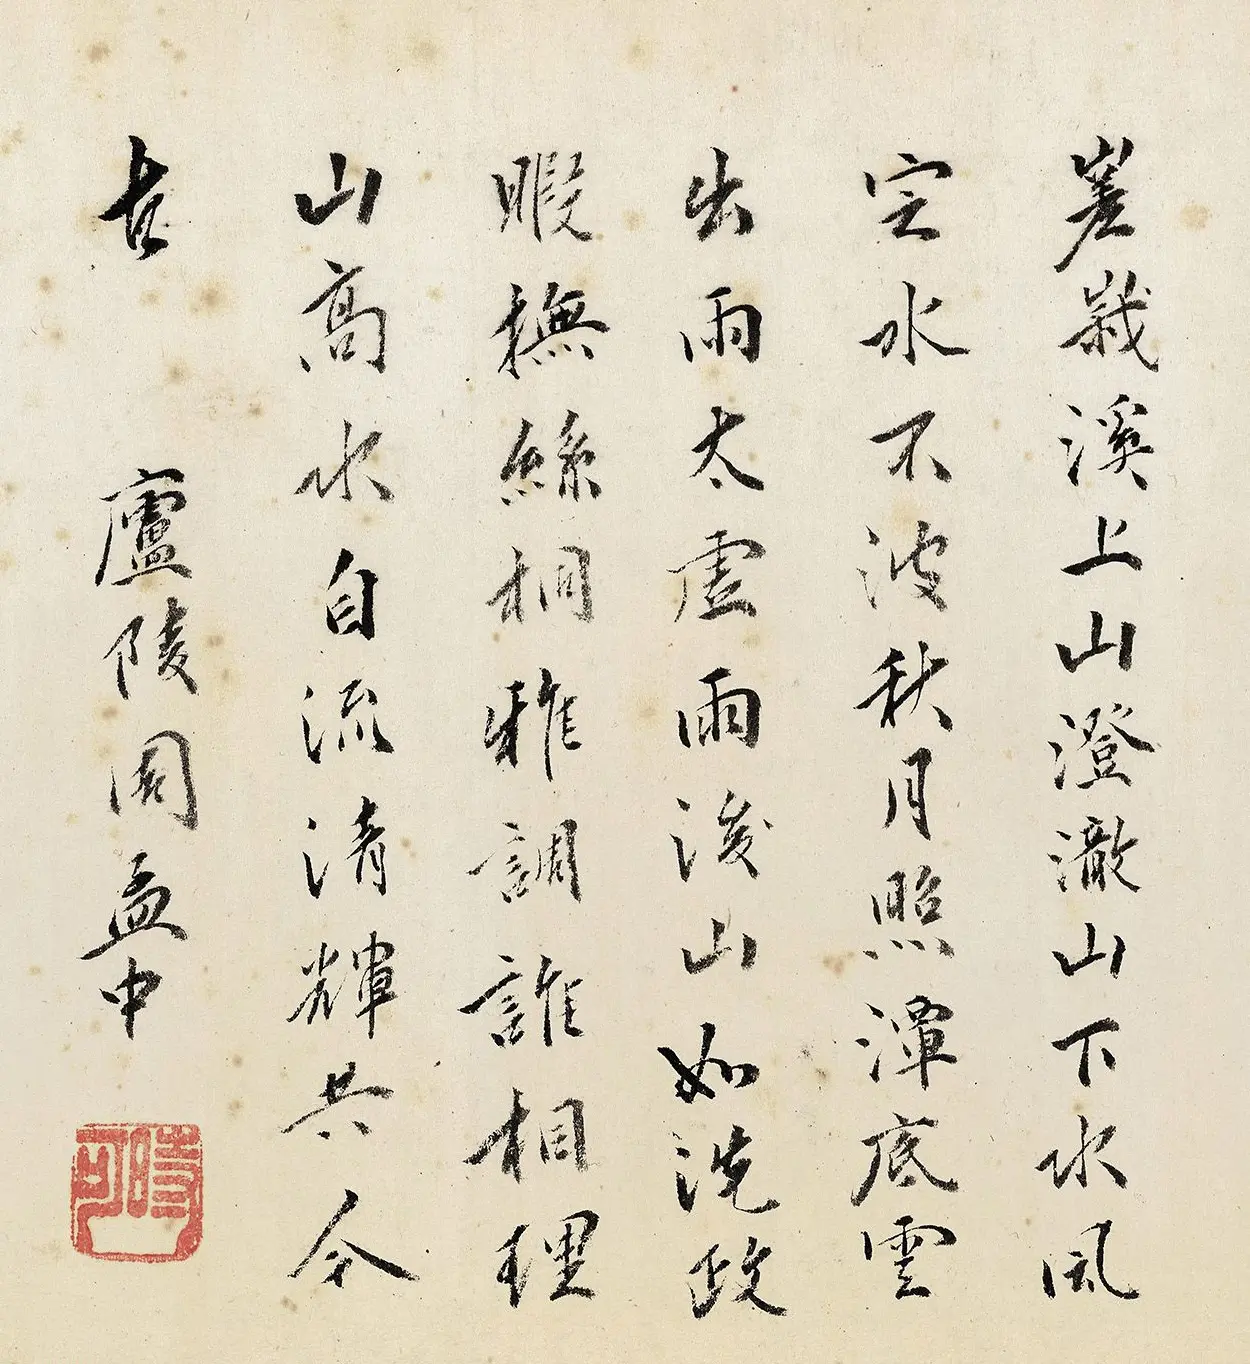 嵳峩溪上山澄澈山下水風
定水不波秋月照潭底雲
出雨太虛雨後山如洗政
暇撫絲桐雅調誰相理
山高水自流清輝共今
古
廬陵周孟中
時可